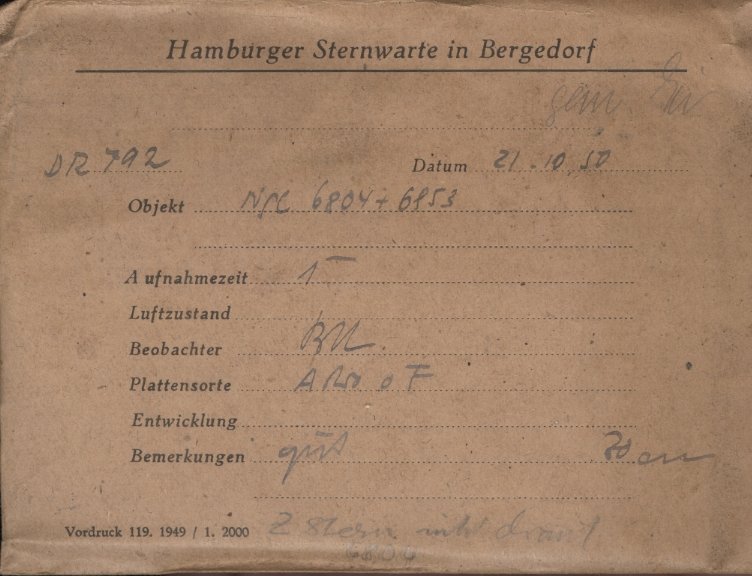 Hamburger Sternwarte in Bergedorf
gem.
DR 792 Datum 21.10.50
Objekt NGC 6804 + 6853
Aufnahmezeit 1
Luftzustand
Beobachter
Plattensorte
Entwicklung
Bemerkungen gut 20 cm
Vordruck 119. 1949 / 1. 2000 Z Stern nicht
6804